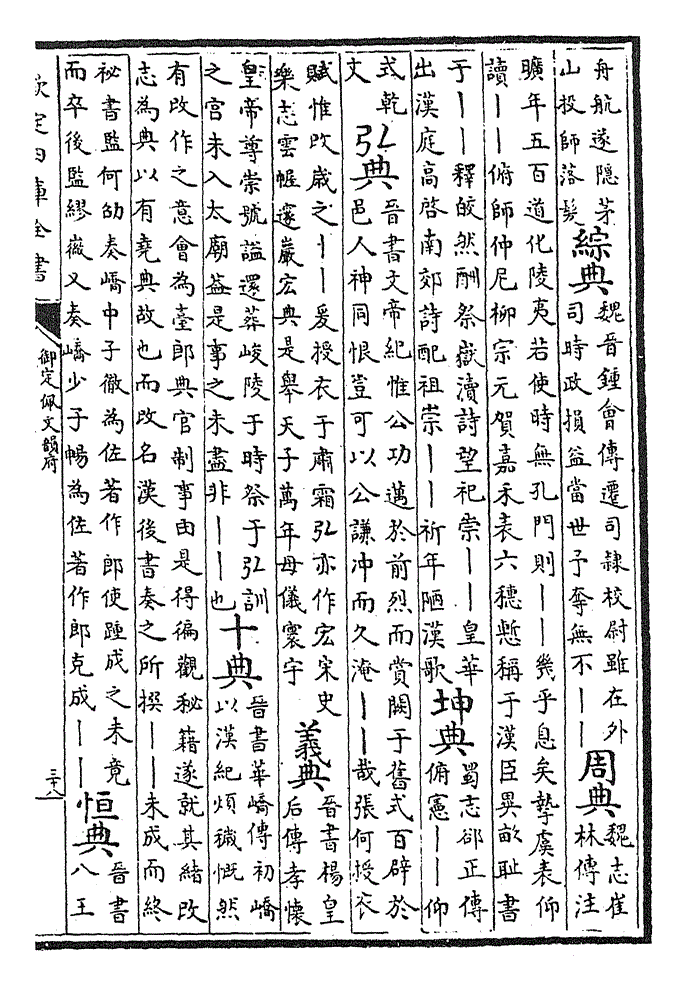 舟航遂隱茅
山投師落髮
綜典
魏晉鍾會傳遷司隸校尉雖在外
司時政損益當世予奪無不｜｜
周典
魏志崔
林傳注
曠年五百道化陵夷若使時無孔門則｜｜幾乎息矣摯虞表仰
讀｜｜俯師仲尼柳宗元賀嘉禾表六穗慙稱于漢臣異畝耻書
于｜｜釋皎然酬祭嶽瀆詩望祀崇｜｜皇華
出漢庭高啓南郊詩配祖崇｜｜祈年陋漢歌
坤典
蜀志郤正傳
俯憲｜｜仰
式乾
文
弘典
晉書文帝紀惟公功邁於前烈而賞闕于舊式百辟於
邑人神同恨豈可以公謙冲而久淹｜｜哉張何授衣
賦惟改歲之｜｜爰授衣于肅霜弘亦作宏宋史
樂志雲幄邃嚴宏典是舉天子萬年母儀寰宇
義典
晉書楊皇
后傳孝懷
皇帝尊崇號諡還葬峻陵于時祭于弘訓
之宮未入太廟葢是事之未盡非｜｜也
十典
晉書華嶠傳初嶠
以漢紀煩穢慨然
有改作之意會為臺郎典官制事由是得徧觀秘籍遂就其緒改
志為典以有堯典故也而改名漢後書奏之所撰｜｜未成而終
祕書監何劭奏嶠中子徹為佐著作郎使踵成之未竟
而卒後監繆嶶又奏嶠少子暢為佐著作郎克成｜｜
恒典
晉書
八王
欽定四庫全書
御定佩文韻府
三十八